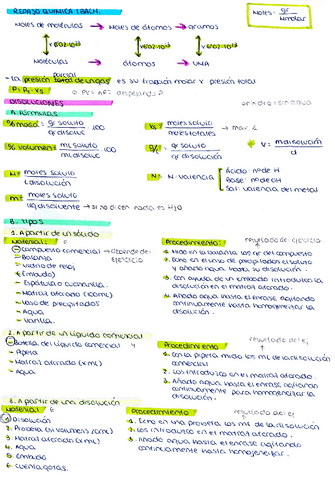 REPASO QUÍMICA 1 BACH.
Moles = gr / Mmolar
Moles de moléculas → Moles de átomos → gramos
x 6'02·10²³ x 6'02·10²³ x 6'02·10²³
Moléculas átomos → UMA
- La presión parcial total de un gas es su fracción molar x presión total
P = Pt · Xs
DISOLUCIONES
A. Fórmulas
% masa = gr soluto / gr disoluc. · 100
Xs = moles soluto / moles totales
% volumen = mL soluto / mL disoluc · 100
g/L = gr soluto / L disolución
V = m disolución / d
M = moles soluto / L disolución
N = M · valencia
Ácido: nº de H
Base: nº de OH
Sal: valencia del metal
m = moles soluto / kg disolvente → si no dicen nada es H₂O
B. TIPOS
1. A partir de un sólido
Material:
- Compuesto comercial → Depende del ejercicio
- Balanza
- Vidrio de reloj
- (Embudo)
- Espátula o cucharilla
- Matraz aforado (x mL)
- Vaso de precipitados
- Agua
- Varilla
Procedimiento: resultado de ejercicio
1. Mido en la balanza los gr del compuesto
2. Echo en el vaso de precipitados el soluto y añado agua hasta su disolución.
3. Con ayuda de un embudo introduzco la disolución en el matraz aforado.
4. Añado agua hasta el enrase agitando continuamente hasta homogeneizar la disolución.
2. A partir de un líquido comercial
- Botella del líquido comercial
- Pipeta
- Matraz aforado (x mL)
- Agua
Procedimiento resultado de ej
1. Con la pipeta mido los mL de la disolución comercial
2. Los introduzco en el matraz aforado.
3. Añado agua hasta el enrase agitando continuamente para homogeneizar la disolución.
3. A partir de una disolución
Material 6
1. Disolución
2. Probeta (si volumen > x mL)
3. Matraz aforado (x mL)
4. Agua
5. Embudo
6. Cuentagotas.
Procedimiento resultado del ej
1. Echo en una probeta los mL de la disolución
2. Los introduzco en el matraz aforado.
3. Añado agua hasta el enrase agitando continuamente hasta homogeneizar.